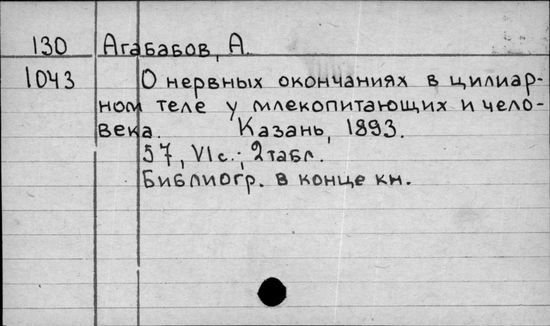 130 Агабабов, А.
1043 О нервных окончаниях в цилиар-
ном теле у млекопитающих и чело-
века. Казань, 1893.
57, VI с.; 2 табл.
Библиогр. в конце кн.